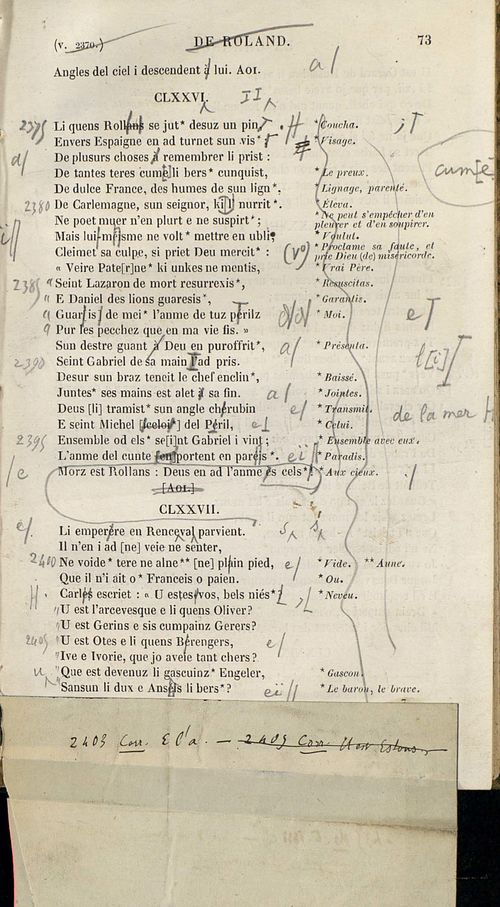 (v. 2370.) DE ROLAND. 73
Angles del ciel i descendent à lui. Aoi. a/
CLXXVI. II
2375 Li quens Rollans se jut* desuz un pin, * Coucha.
Envers Espaigne en ad turnet sun vis* : * Visage.
De plusurs choses à remembrer li prist : a/
De tantes teres cume li bers* cunquist, * Le preux. cum[e]
De dulce France, des humes de sun lign*, * Lignage, parenté.
2380 De Carlemagne, sun seignor, ki li nurrit*. * Éleva.
Ne poet muer n'en plurt e ne suspirt* ; * Ne peut s'empêcher d'en pleurer et d'en soupirer.
Mais lui-meisme ne volt* mettre en ubli; * Voulut.
Cleimet sa culpe, si priet Deu mercit* : (v°) * Proclame sa faute, et prie Dieu (de) miséricorde.
« Veire Pate[r]ne* ki unkes ne mentis, * Vrai Père.
2385 " Seint Lazaron de mort resurrexis*, * Resuscitas.
" E Daniel des lions guaresis*, * Garantis.
" Guaris de mei* l'anme de tuz perilz * Moi. e
" Pur les pecchez que en ma vie fis. »
Sun destre guant à Deu en puroffrit*, a/ * Présenta.
2390 Seint Gabriel de sa main l'ad pris. l[i]
Desur sun braz teneit le chef enclin*, * Baissé.
Juntes* ses mains est alet à sa fin. a/ * Jointes.
Deus [li] tramist* sun angle cherubin e/ * Transmit. de la mer
E seint Michel [celoi*] del Péril, e/ * Celui.
2395 Ensemble od els* se[i]nt Gabriel i vint ; * Ensemble avec eux.
L'anme del cunte [en]portent en pareis*. eï// * Paradis.
/e Morz est Rollans : Deus en ad l'anme es cels*! * Aux cieux.
[Aoi.]
CLXXVII.
e/ Li emperére en Rencevals parvient. s s
Il n'en i ad [ne] veie ne senter,
2400 Ne voide* tere ne alne** [ne] plain pied, e/ * Vide. ** Aune.
Que il n'i ait o* Franceis o paien. * Ou.
Carles escriet : « U estes-vos, bels niés*? * Neveu.
"U est l'arcevesque e li quens Oliver?
"U est Gerins e sis cumpainz Gerers?
2405 "U est Otes e li quens Bérengers, e/
"Ive e Ivorie, que jo aveie tant chers?
"Que est devenuz li gascuinz* Engeler, * Gascon.
"Sansun li dux e Anseïs li bers*? eï// * Le baron, le brave.
2403 Corr. E l'a. — 2405 Corr.